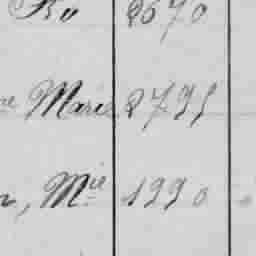 Bu 2670
Marie 2795
, Mie 1990